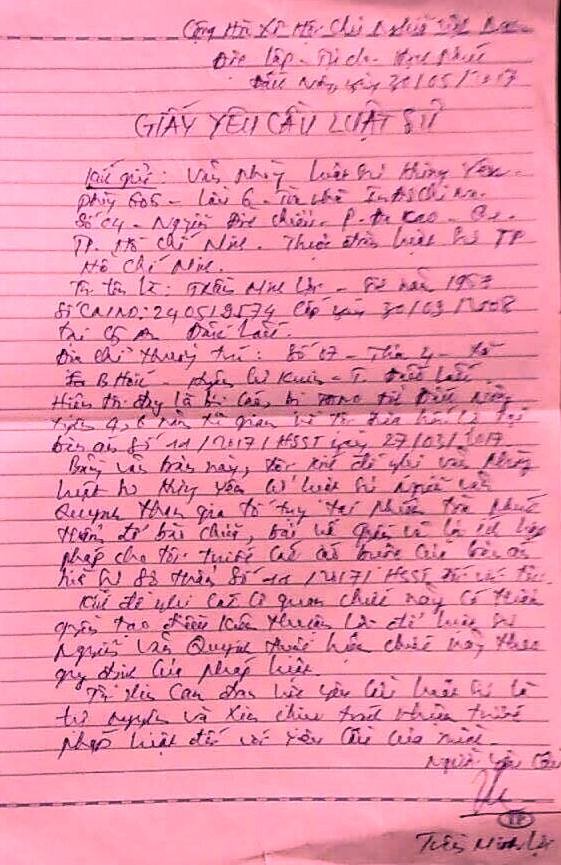 Cộng Hòa Xã Hội Chủ Nghĩa Việt Nam
Độc lập - Tự do - Hạnh Phúc
ngày 30/05/2017
GIẤY YÊU CẦU LUẬT SƯ
Kính gửi: Văn phòng luật sư Hồng Yến -
phòng 606 - Lầu 6 - Tòa nhà
Số 64 - Nguyễn Đình Chiểu - P. Đa Kao - Q1.
TP. Hồ Chí Minh. Thuộc đoàn luật sư TP
Hồ Chí Minh.
Tôi tên là: Trần Minh Lợi - Sinh năm 1957
Số CMND: 240519574 Cấp ngày 30/09/2008
Tại CA Đắk Lắk
Địa chỉ thường trú: Số 07 - Thôn 4 - Xã
Ea BHốk - Huyện Cư Kuin - T. Đắk Lắk
Hiện tôi đang là bị cáo bị TAND Đắk
bản án số 11/2017/HSST ngày 27/03/2017
Bằng văn bản này, tôi kính đề nghị văn phòng
luật sư Hồng Yến cử luật sư Nguyễn Văn
Quynh tham gia tố tụng tại phiên tòa phúc
thẩm để bào chữa, bảo vệ quyền và lợi ích hợp
pháp cho tôi trước cáo buộc của bản án
hình sự sơ thẩm số 11/2017/HSST đối với tôi.
Kính đề nghị các cơ quan chức năng có thẩm
quyền tạo điều kiện thuận lợi để luật sư
Nguyễn Văn Quynh thực hiện chức năng theo
quy định của pháp luật.
Tôi xin cam đoan việc yêu cầu luật sư là
tự nguyện và xin chịu trách nhiệm trước
pháp luật đối với yêu cầu của mình.
Người yêu cầu
Trần Minh Lợi